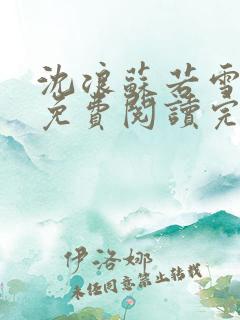 沈浪蘇若雪
免費閱讀完
伊洛娜
未經同意禁止轉載